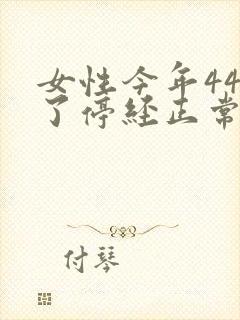 女性今年44
了停经正常
付琴